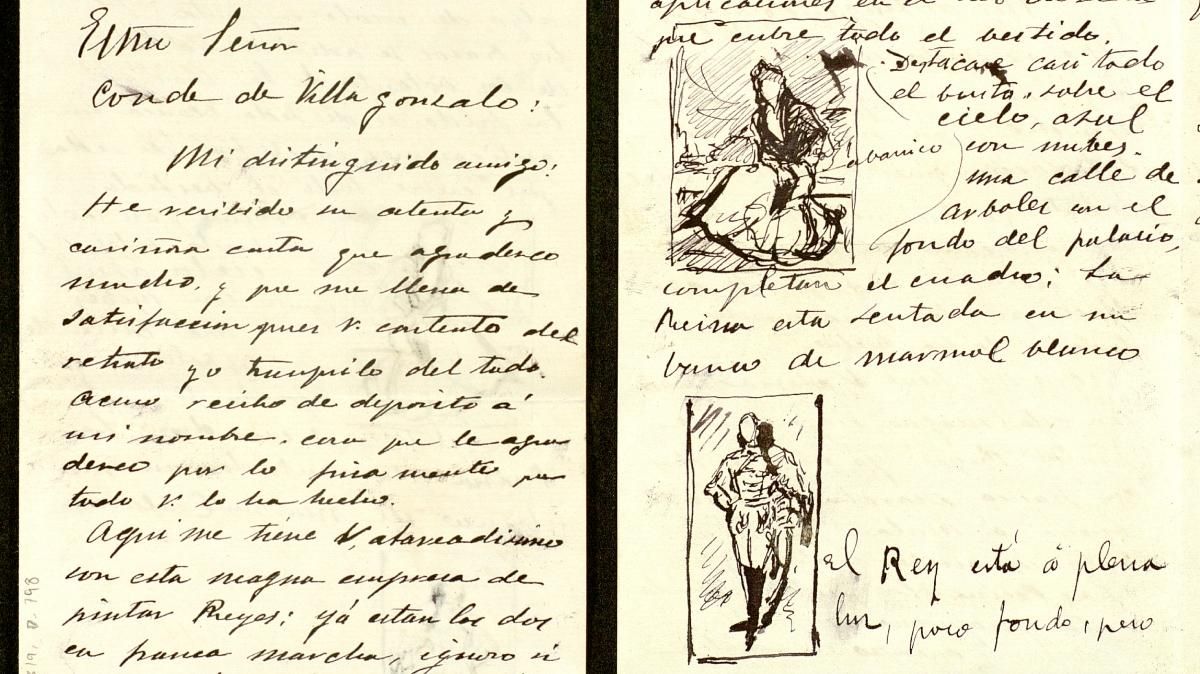 Exmo Señor
Conde de Villagonzalo:
Mi distinguido amigo:
He recibido su atenta y
cariñosa carta que agradezco
mucho, y que me llena de
satisfaccion pues V. contento del
retrato yo tranquilo del todo.
recibo de deposito á
mi nombre, cosa que le agra
desco por lo fina mente que
todo V. lo ha hecho.
Aqui me tiene V, atareadisimo
con esta magna empresa de
pintar Reyes; yá estan los dos
en franca marcha, ignoro si
aplicaciones en el
que cubre todo el vestido.
Destacase casi todo
el busto, sobre el
cielo, azul
abanico
con nubes.
una calle de
arboles con el
fondo del palacio,
completan el cuadro; La
Reina esta sentada en un
banco de marmol blanco
el Rey está á plena
luz, poco fondo, pero
D. 798